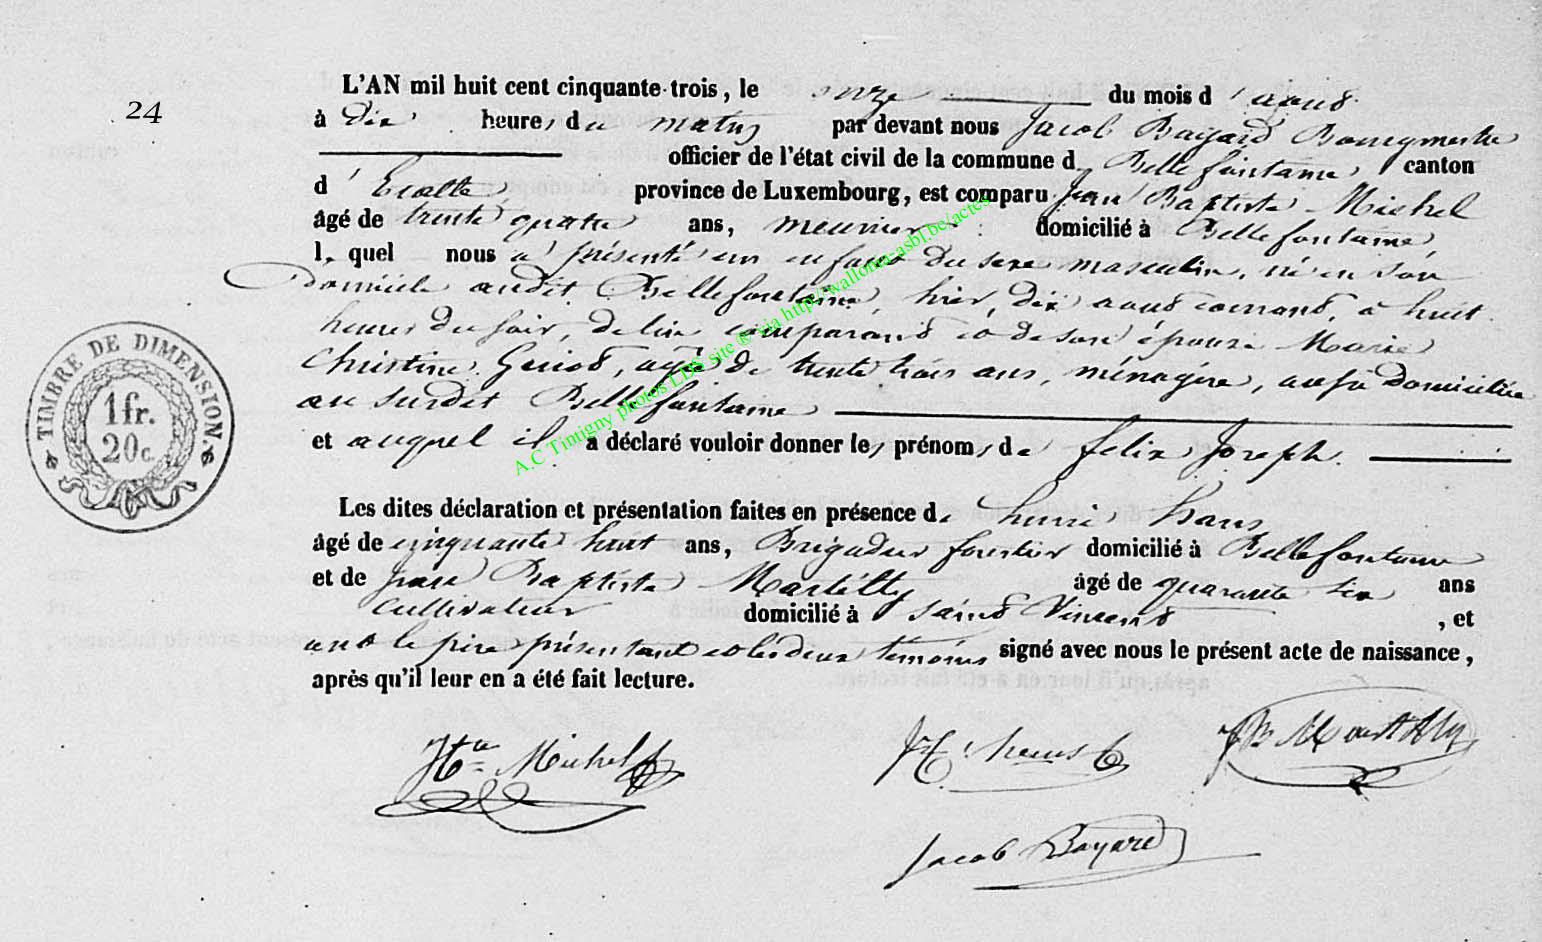 24
L'AN mil huit cent cinquante-trois, le onze du mois d'aout
à dix heures du matin par devant nous Jacob Bayard Bourgmestre
officier de l'état civil de la commune de Bellefontaine canton
d'Etalle, province de Luxembourg, est comparu Jean Baptiste Michel
âgé de trente quatre ans, meunier domicilié à Bellefontaine
lequel nous a présenté un enfant du sexe masculin, né en son
domicile audit Bellefontaine, hier, dix aout courant, à huit
heures du soir, de lui comparant et de son épouse Marie
Christine, agée de trente trois ans, ménagère, aussi domiciliée
au susdit Bellefontaine
et auquel il a déclaré vouloir donner les prénoms de felix Joseph.
Les dites déclaration et présentation faites en présence de henri
âgé de cinquante huit ans, Brigadier forestier domicilié à Bellefontaine
et de Jean Baptiste Martilly âgé de quarante six ans
cultivateur domicilié à Saint Vincent, et
ont le père présentant et les deux témoins signé avec nous le présent acte de naissance,
après qu'il leur en a été fait lecture.
Michel
JB Martilly
Jacob Bayard
TIMBRE DE DIMENSION.
1 fr.
20 c.
A.C Tintigny photos LDS site ® via http://wallonia-asbl.be/actes